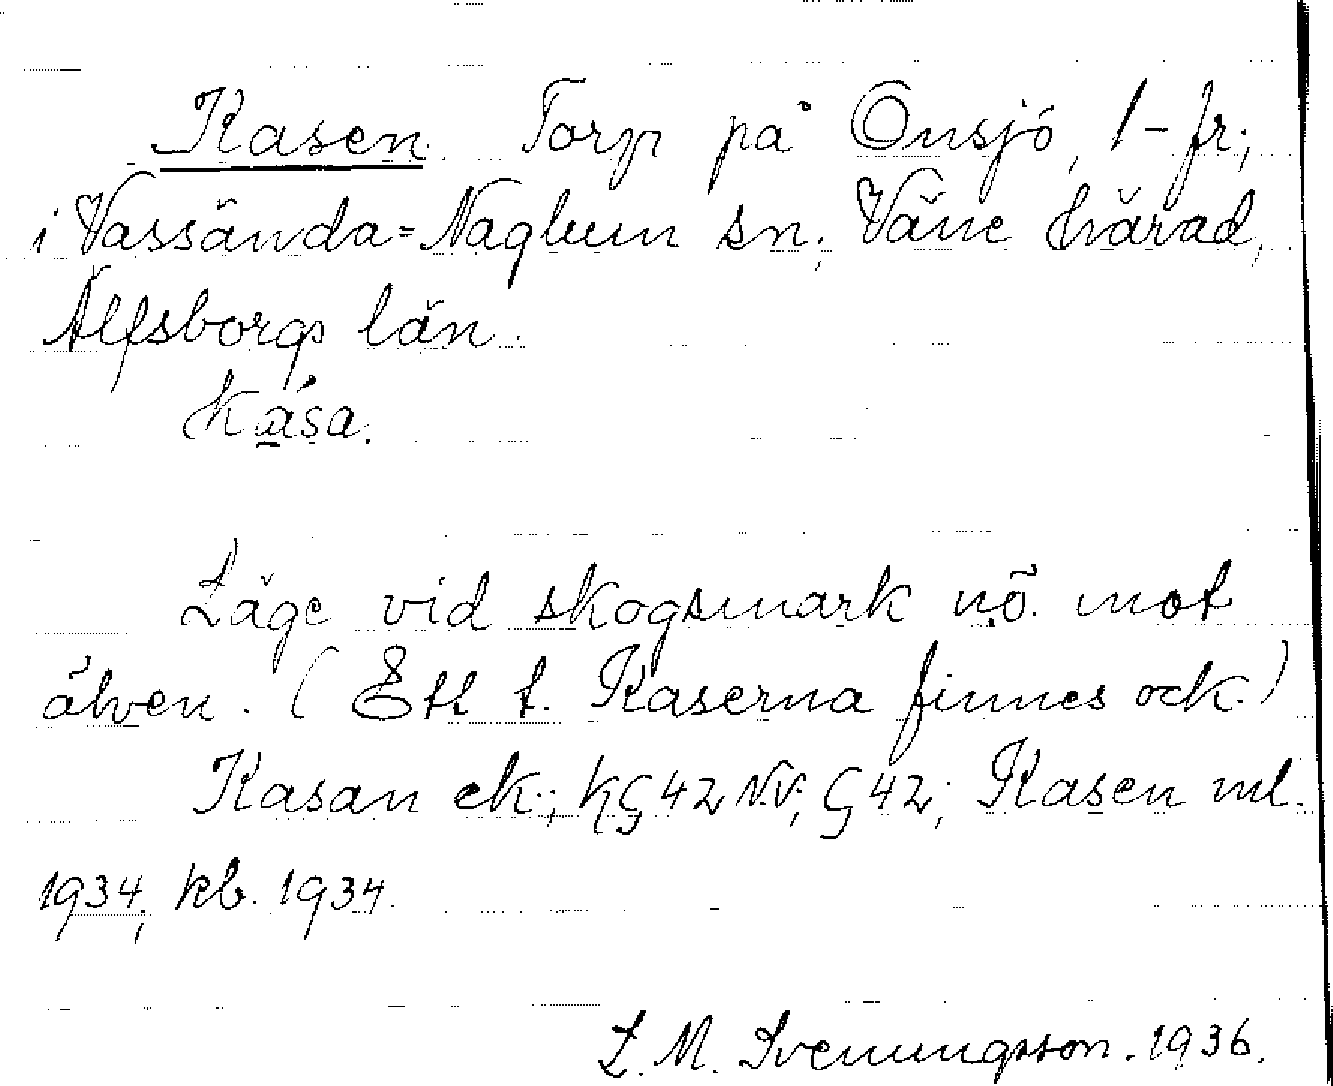 Kasen. Torp på Önsjö, 1-fr;
i Vassända=Naglum sn; Väne härad,
Älfsborgs län.
kása.
Läge vid skogsmark nö. mot
älven. (Ett t. Kaserna finnes ock.)
Kasan ek.; KG 42 NV; G 42; Kasen ml.
1934; kb. 1934.
L. M. Svenungsson. 1936.